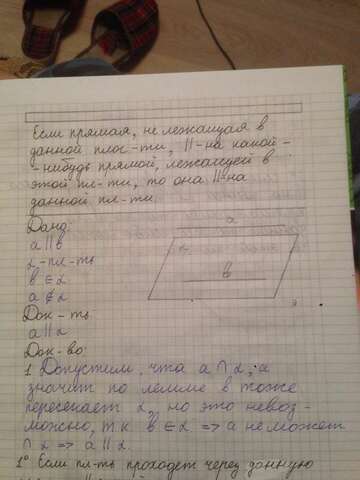 Если прямая, не лежащая в
данной плос-ти, ||-на какой-
-нибудь прямой, лежащей в
этой пл-ти, то она ||-на
данной пл-ти
Дано:
a
a || b
α-пл-ть
α
b ∈ α
b
a ∉ α
Док-ть:
a || α
Док-во:
1. Допустим, что a ∩ α, а
значит по лемме b тоже
пересекает α, но это невоз-
можно, т.к. b ∈ α => a не может
∩ α => a || α.
1° Если пл-ть проходет через данную